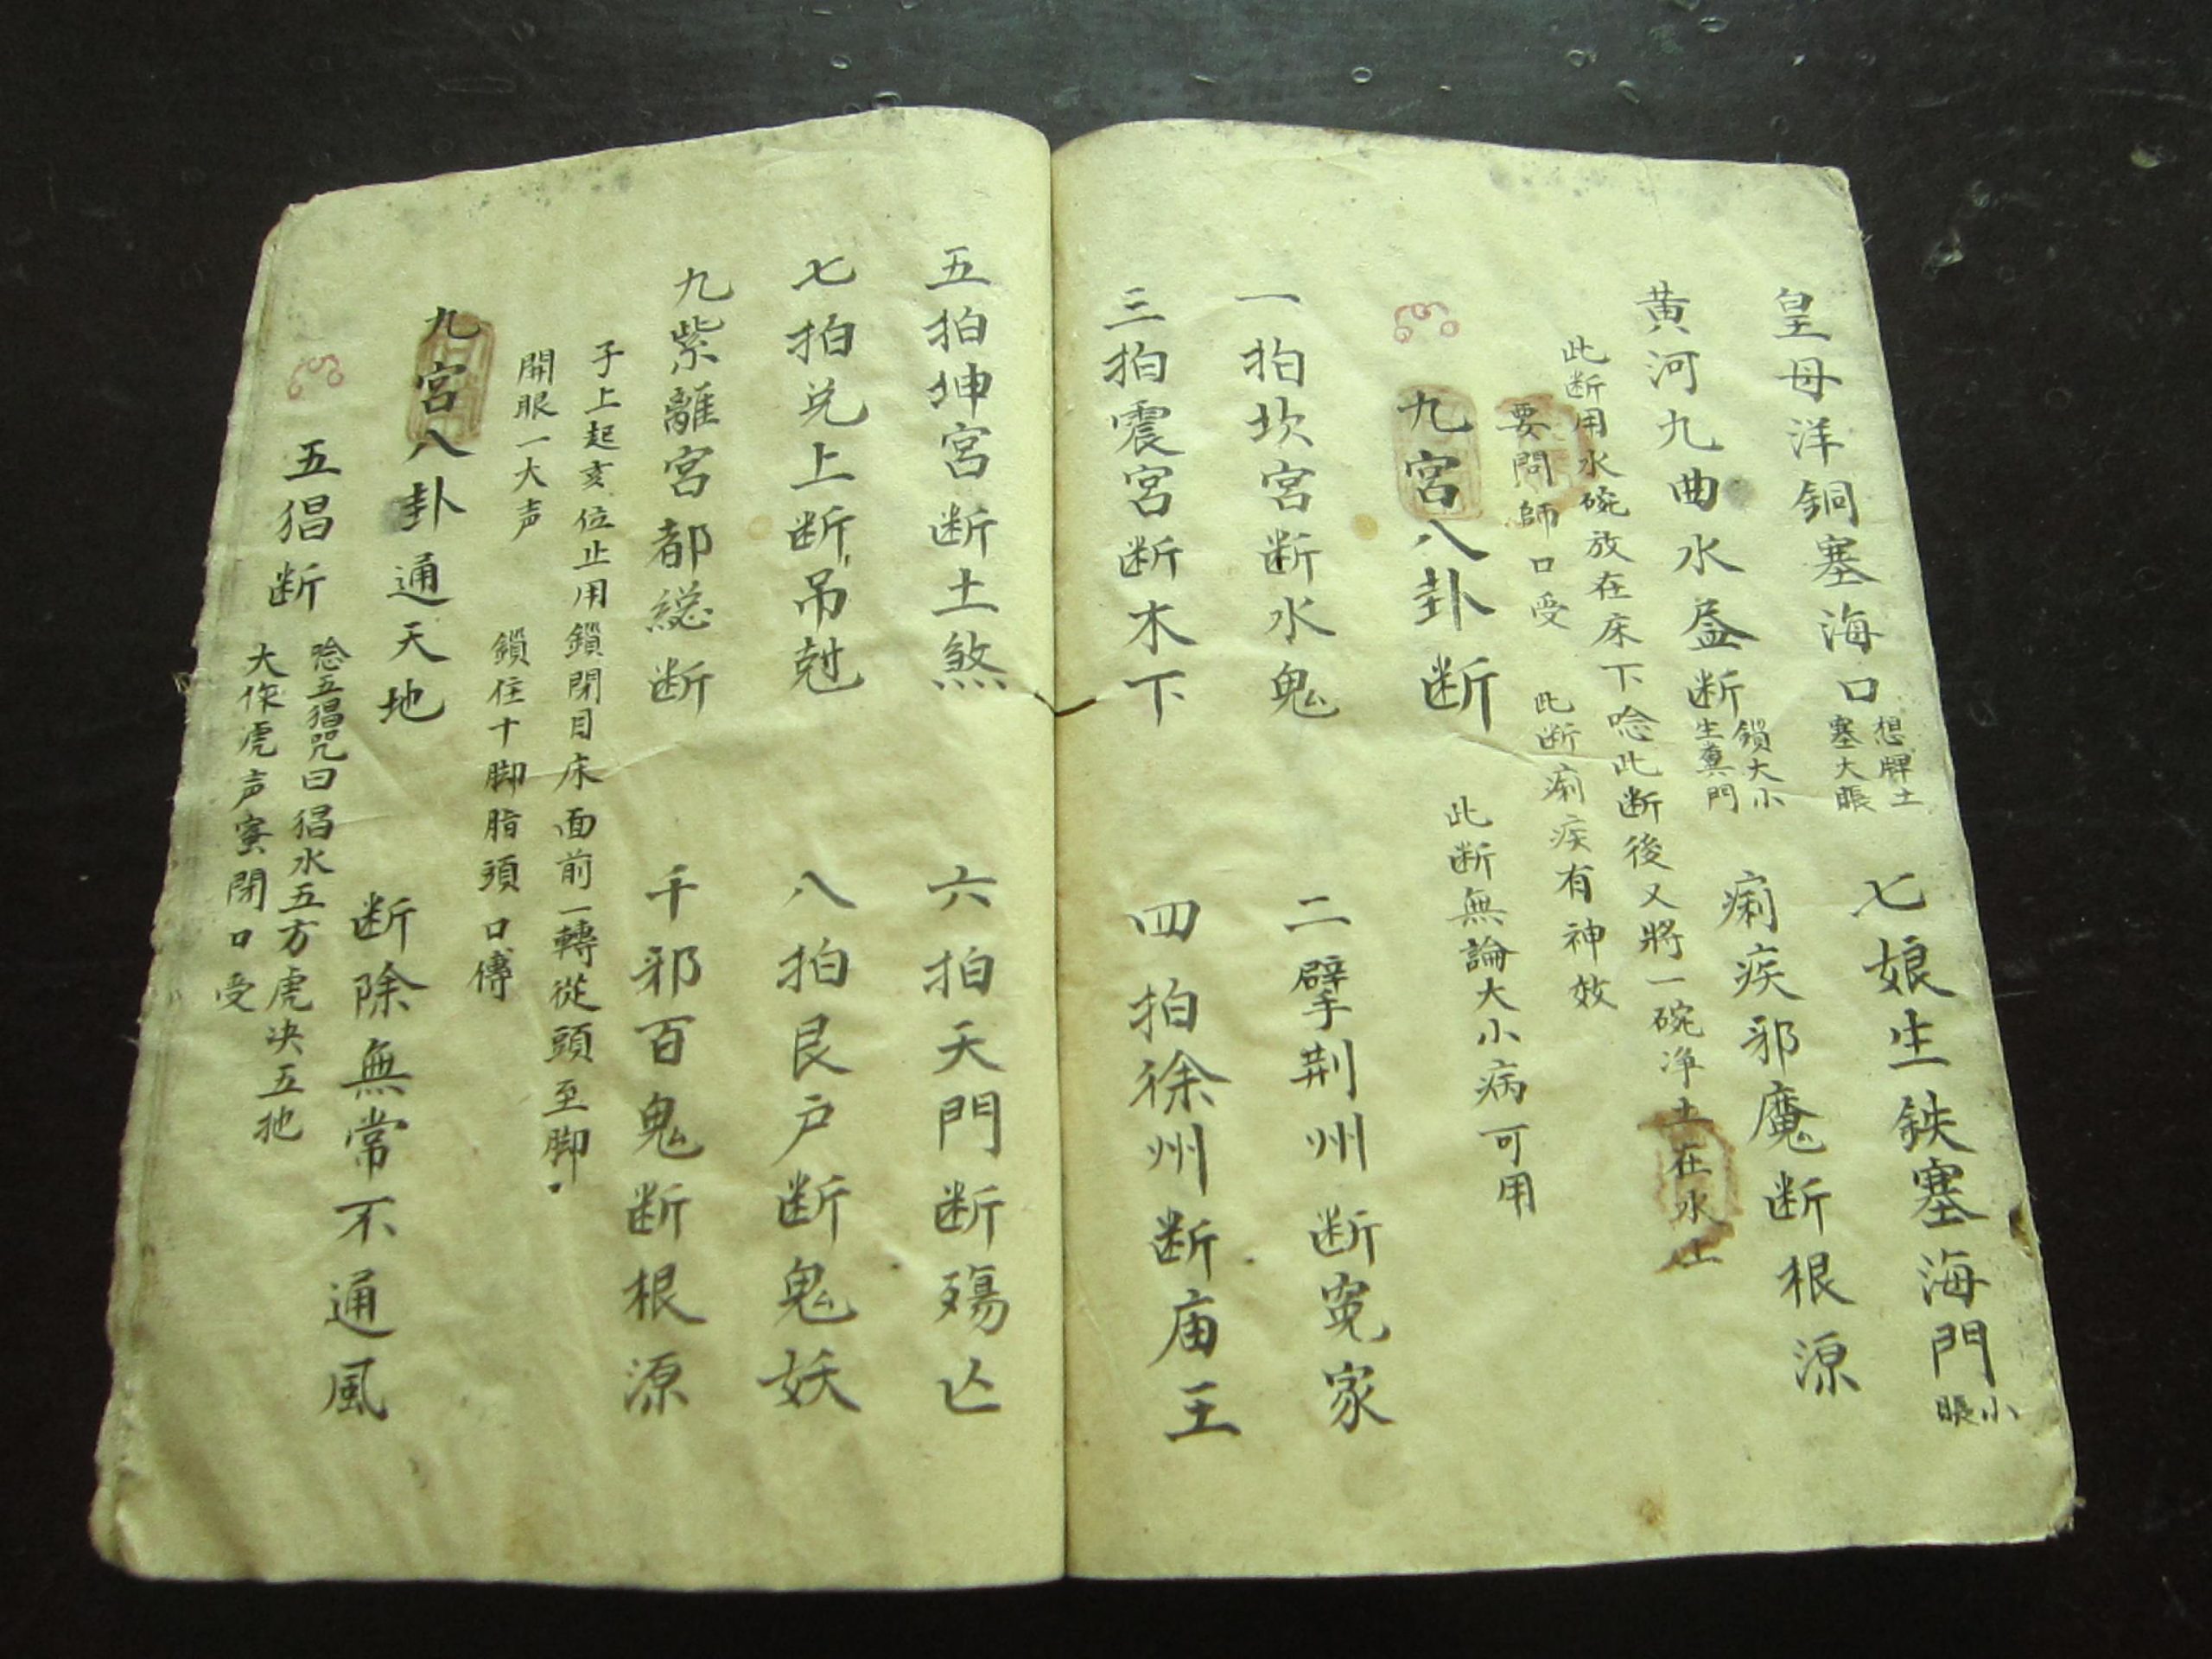 皇母洋銅塞海口
想牌土
塞大賬
七娘生鉄塞海門
小賬
黄河九曲水盆断
鎖大小
生糞門
痢疾邪魔断根源
此断用水碗放在床下唸此断後又將一碗净土在水上
要問師口受 此断痢疾有神效
九宮八卦断
此断無論大小病可用
一拍坎宮断水鬼 二擘荆州断冤家
三拍震宮断木下 四拍徐州断庙王
五拍坤宮断土煞 六拍天門断殤亡
七拍兑上断吊尅 八拍艮户断鬼妖
九紫離宮都総断 千邪百鬼断根源
子上起亥位止用鎖閉目床面前一轉從頭至脚
開眼一大声 鎖住十脚脂須口傳
九宮八卦通天地 断除無常不通風
五猖断
唸五猖咒曰猖水五方虎决五地
大作虎声蜜閉口受